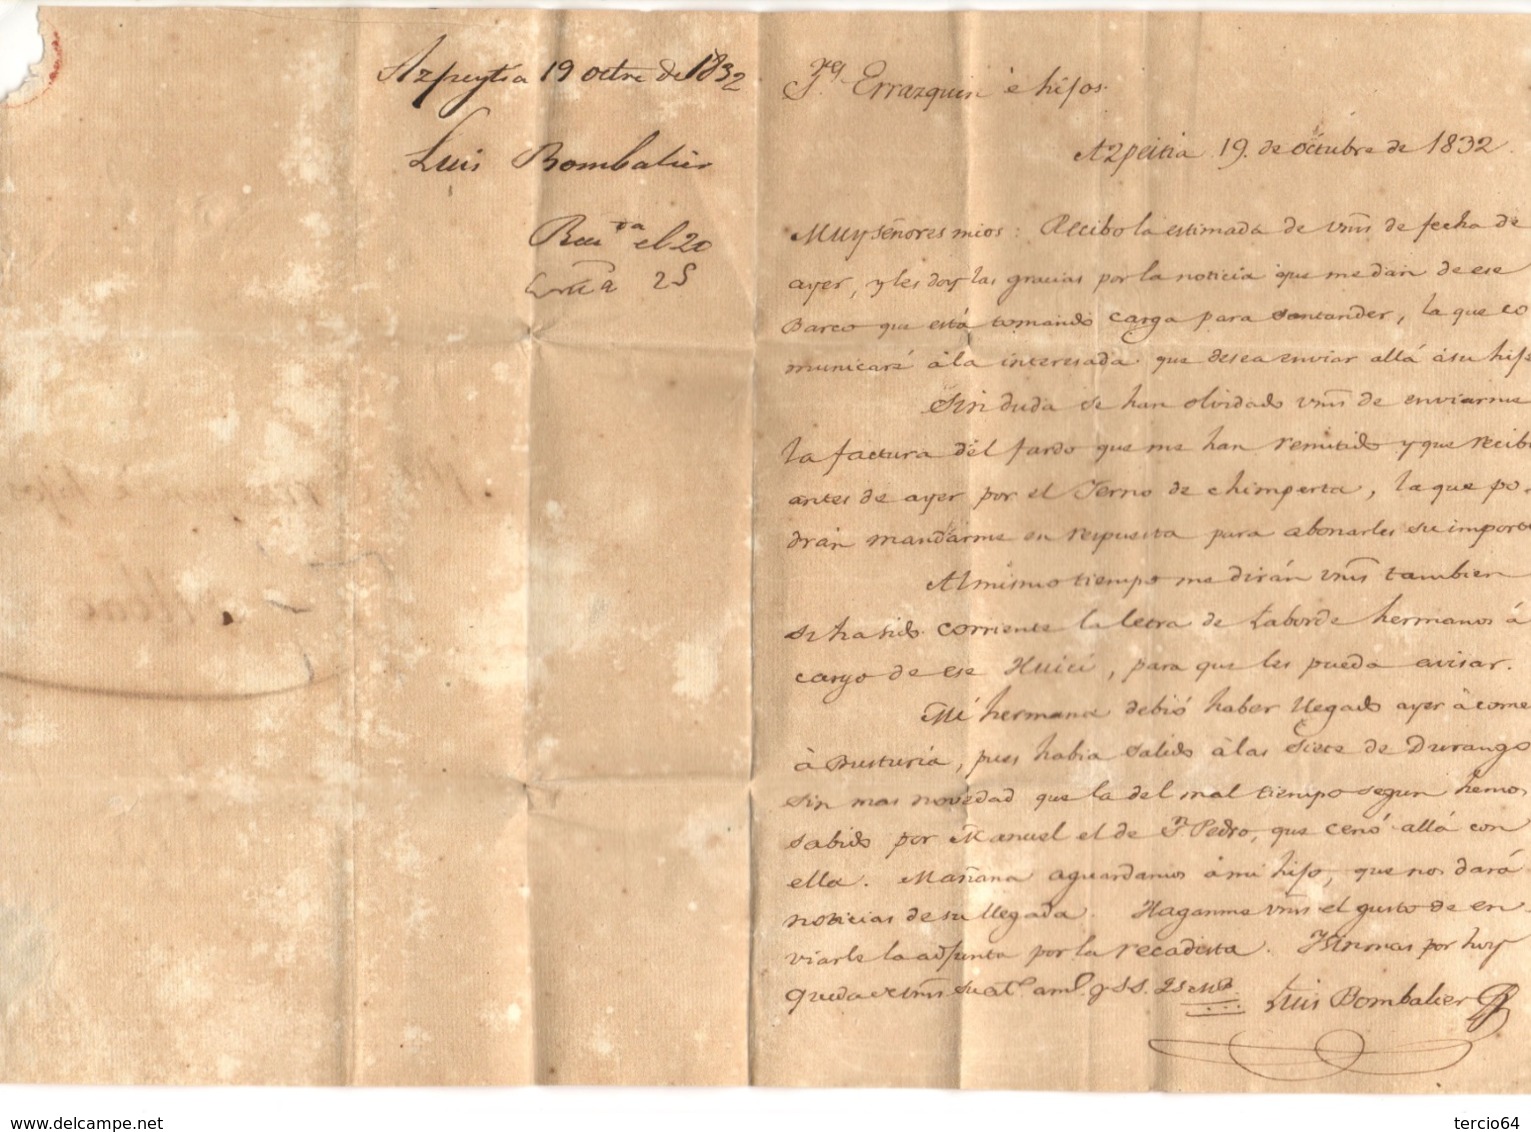 Azpeytia 19 octre de 1832
Luis Bombalier
Reciv.da el 20
Cont.da 25
S.res Errazquin é hijos.
Azpeitia 19. de octubre de 1832
Muy señores mios: Recibo la estimada de vms de fecha de
ayer, y les doy las gracias por la noticia que me dan de ese
Barco que está tomando carga para Santander, la que co
municaré á la interesada que desea enviar allá á su hijo
Sin duda se han olvidado vms de enviarme
la factura del fardo que me han remitido y que recibi
antes de ayer por el Yerno de Chimperta, la que po-
drán mandarme en respuesta para abonarles su importe
Al mismo tiempo me dirán vms tambien
si ha sido corriente la letra de Laborde hermanos á
cargo de ese Huici, para que les pueda avisar.
Mi hermana debió haber llegado ayer á come
á Busturia, pues habia salido á las siete de Durango
sin mas novedad que la del mal tiempo segun hemos
sabido por Manuel el de Sn Pedro, que cenó allá con
ella. Mañana aguardamos á mi hijo, que nos dará
noticias de su llegada. Haganme vms el gusto de en
viarle la adjunta por la recadista. Y sin mas por hoy
queda de vms su at.o am.o y S.S. Q S M B
Luis Bombalier
www.delcampe.net
tercio64